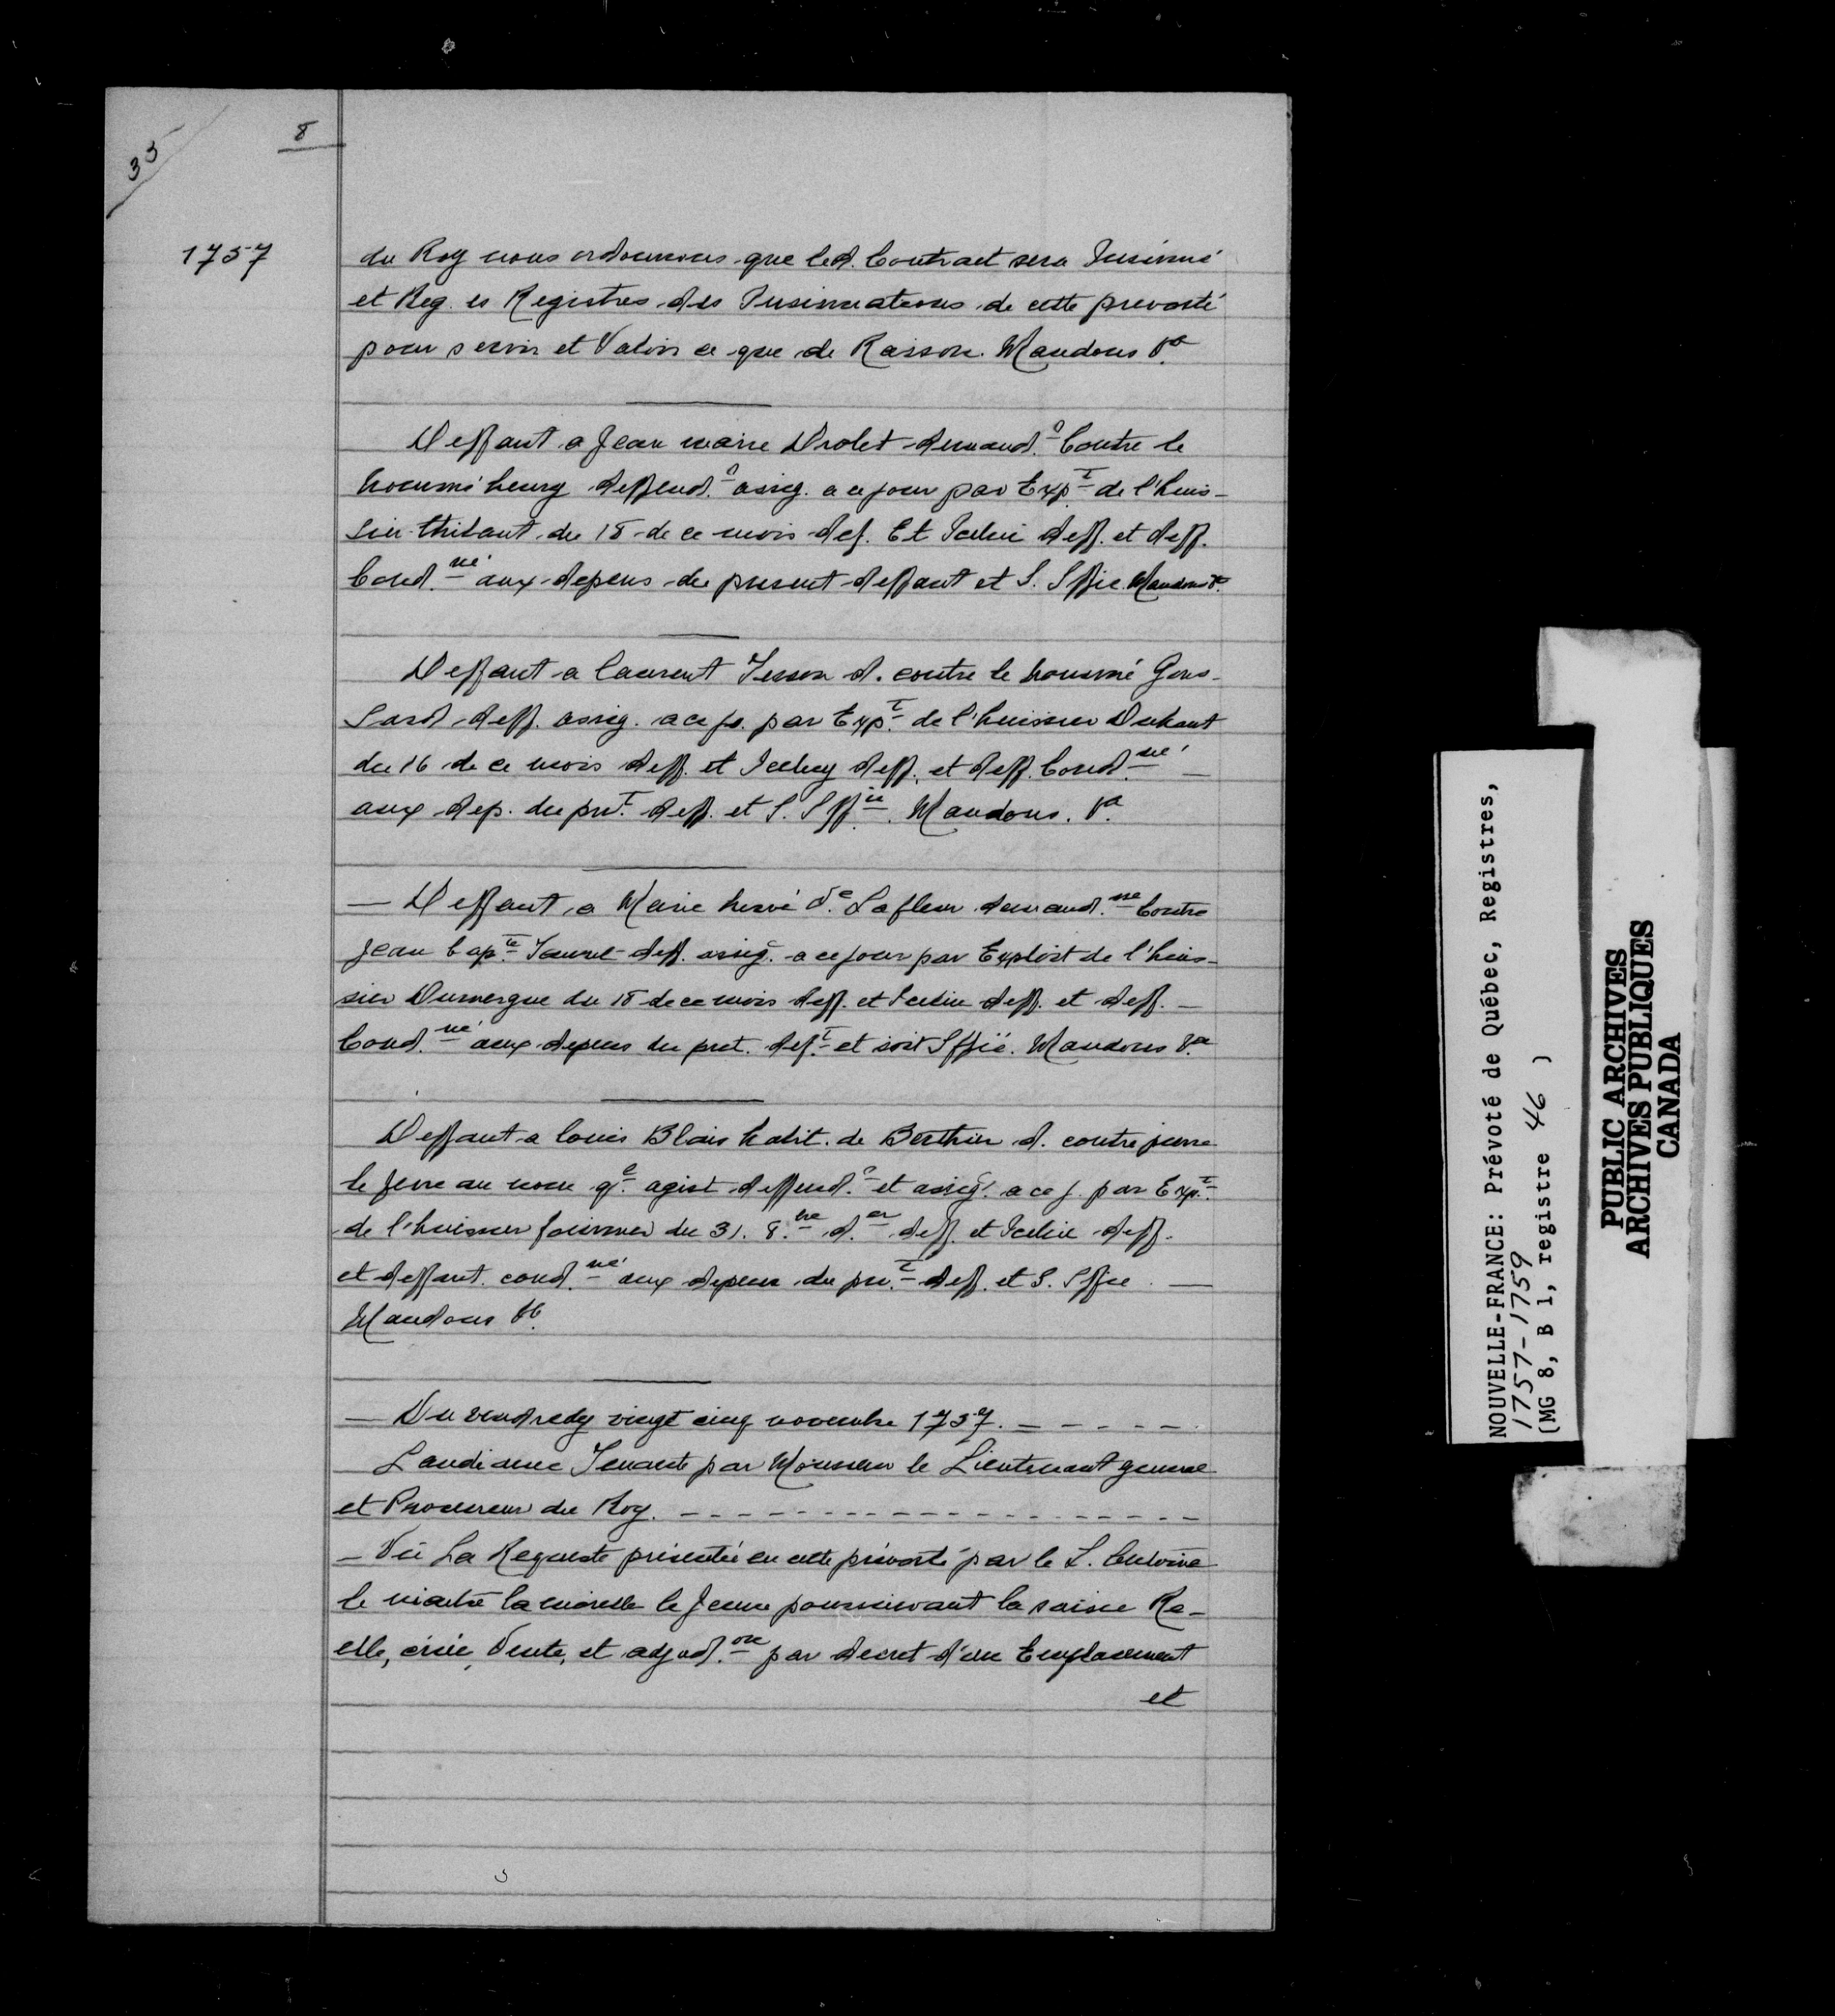 35
8
1757
du Roy nous ordonnons que led. Contract sera Insinué
et Reg. es Registres des Insinuations de cette prevosté
pour servir et Valoir ce que de Raison. Mandons &a
Deffaut a Jean marie Drolet demand.r Contre le
nommé heury deffend.r assig. a ce jour par Exp.t de l'huis-
sier thibaut du 18 de ce mois def. Et Icelui deff. et deff.
Cond.né aux depens du present deffaut et S. Sffie. Mandons &a
Deffaut a laurent Tesson d. contre le nommé Gous-
sard deff. assig. a ce jo. par Exp.t de l'huissier Dubaut
du 16 de ce mois deff. et Iceluy deff. et deff. Cond.né
aux dep. du pnt. deff. et S. Sff.ie. Mandons. &a
Deffaut a Marie hervé V.e Lafleur demand.sse Contre
Jean bap.te deff. assig. a ce jour par Exploit de l'huis-
sier Dumergue du 18 de ce mois deff. et Icelui deff. et deff.
Cond.né aux depens du pnt. def.t et soit Sffié. Mandons &a
Deffaut a louis Blais habit. de Berthier d. contre pierre
le jeune au nom q.e agist deffend.r et assig. a ce j. par Exp.t
de l'huissier fournier du 31. 8.bre d.er deff. et Icelui deff.
et deffaut. cond.né aux depens du pn.t deff. et S. Sffie.
Mandons &a.
Du vendredy vingt cinq novembre 1757.
Laudiance Tenante par Monsieur le Lieutenant general
et Procureur du Roy.
Vû La Requeste présentée en cette prévosté par le S. Antoine
le maitre lamorelle le Jeune poursuivant la saisie Re-
elle, criée, Vente, et adjud.on par decret d'un Emplacement
et
NOUVELLE-FRANCE: Prévoté de Québec, Registres,
1757-1759
(MG 8, B 1, registre 46 )
PUBLIC ARCHIVES
ARCHIVES PUBLIQUES
CANADA